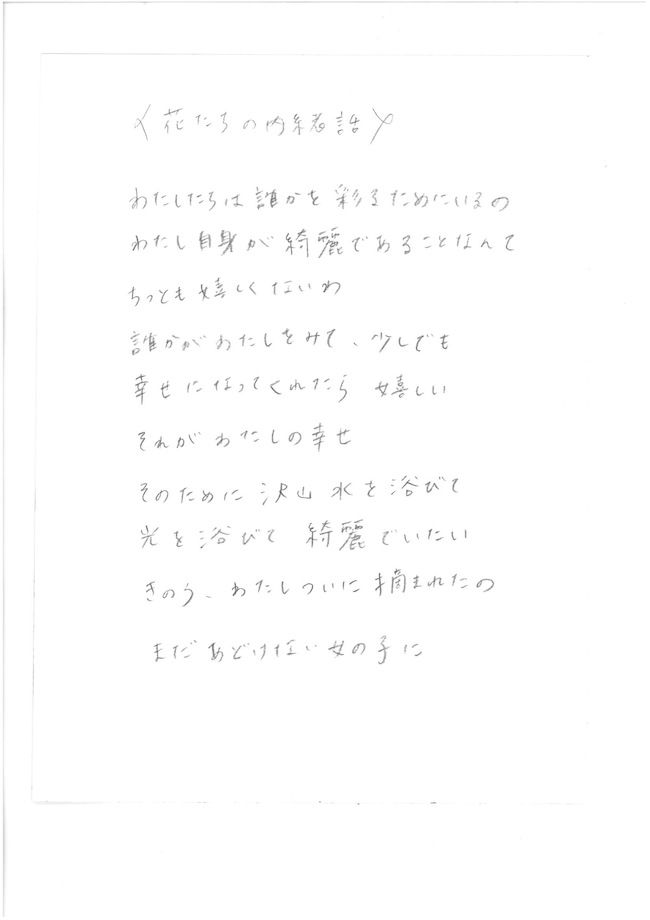 〈花たちの内緒話〉
わたしたちは誰かを彩るためにいるの
わたし自身が綺麗であることなんて
ちっとも嬉しくないわ
誰かがわたしをみて、少しでも
幸せになってくれたら 嬉しい
それがわたしの幸せ
そのために沢山水を浴びて
光を浴びて 綺麗でいたい
きのう、わたしついに摘まれたの
まだあどけない女の子に